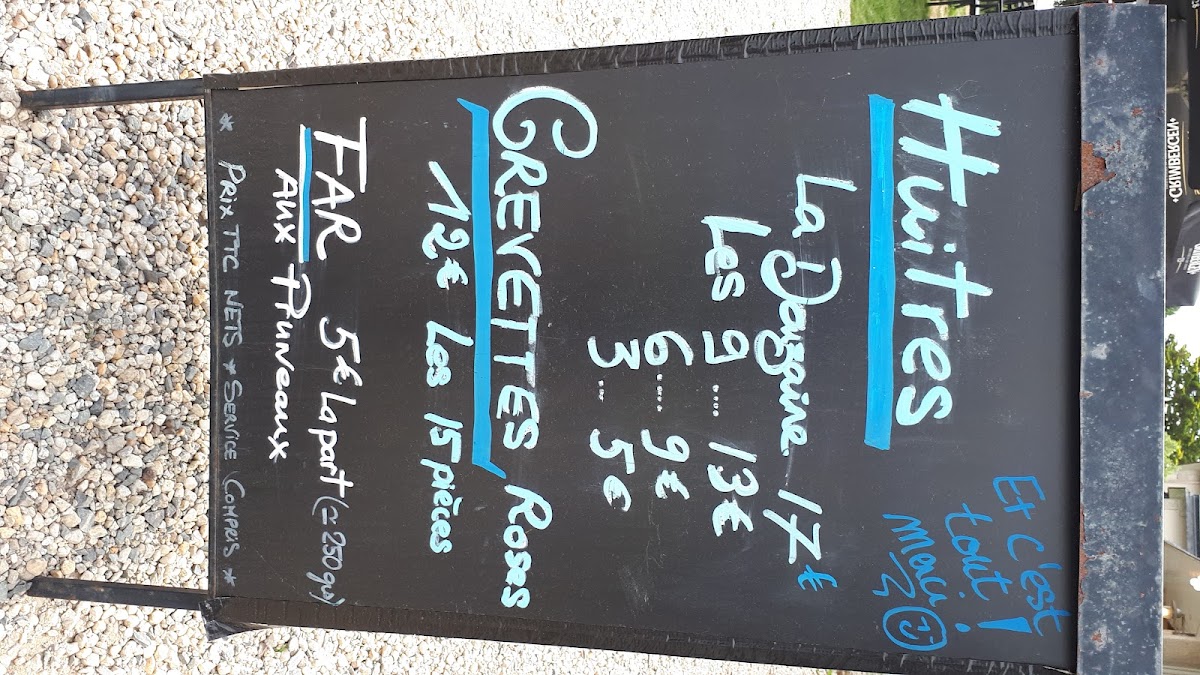 Et c'est
tout !
Merci
Huitres
La Douzaine 17€
Les 9.... 13€
6.... 9€
3... 5€
CREVETTES Roses
12€ Les 15 pièces
FAR 5€ La part (≈ 250grs)
AUX PRUNEAUX
* PRIX TTC NETS * SERVICE COMPRIS *